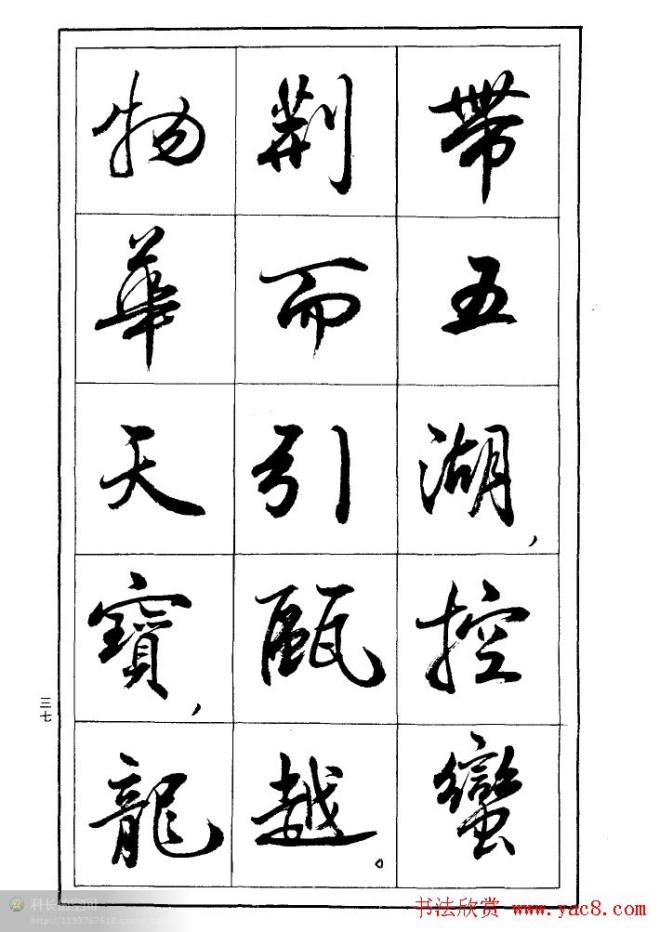 帶五湖，控蠻
荊而引甌越。
物華天寶，龍
三七
书法欣赏 www.yac8.com